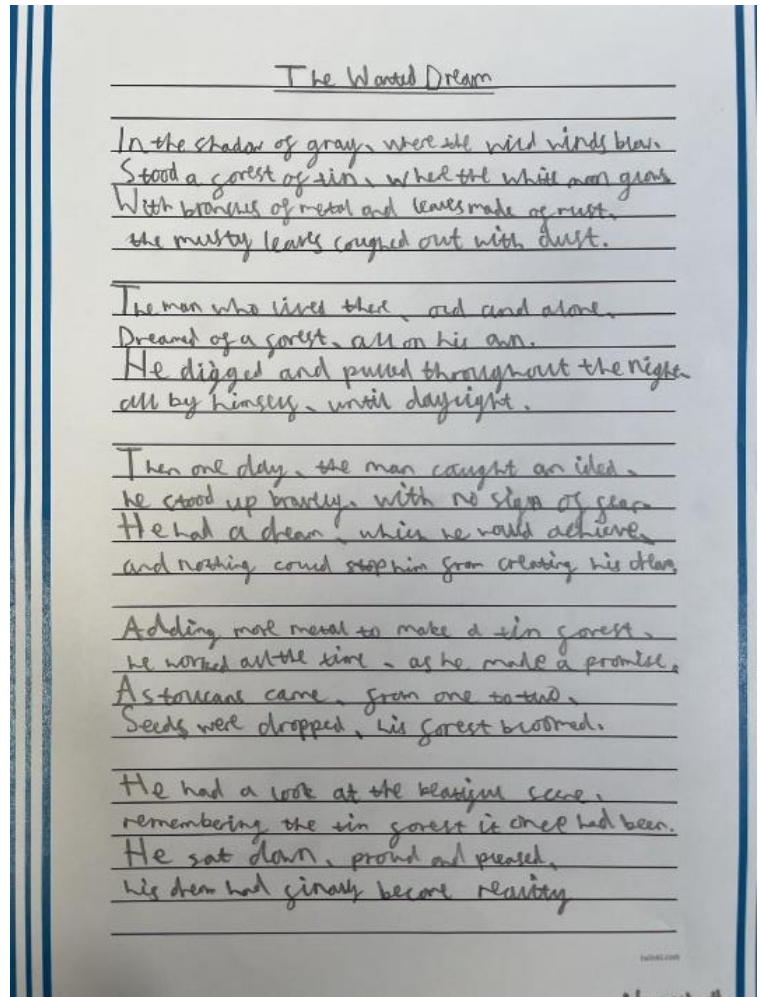 The Wanted Dream
In the shadow of gray, where the wild winds blow.
Stood a forest of tin, where the white man grows
With branches of metal and leaves made of rust.
the musty leaves coughed out with dust.
The man who lived there, old and alone.
Dreamed of a forest, all on his own.
He digged and pulled throughout the night
all by himself, until daylight.
Then one day, the man caught an idea,
he stood up bravely, with no sign of fear.
He had a dream, which he would achieve,
and nothing could stop him from creating his dream,
Adding more metal to make a tin forest,
he worked all the time, as he made a promise.
As toucans came, from one to two,
Seeds were dropped, his forest bloomed.
He had a look at the beatiful scene,
remembering the tin forest it once had been.
He sat down, proud and pleased,
his dream had finally become reality
twinkl.com